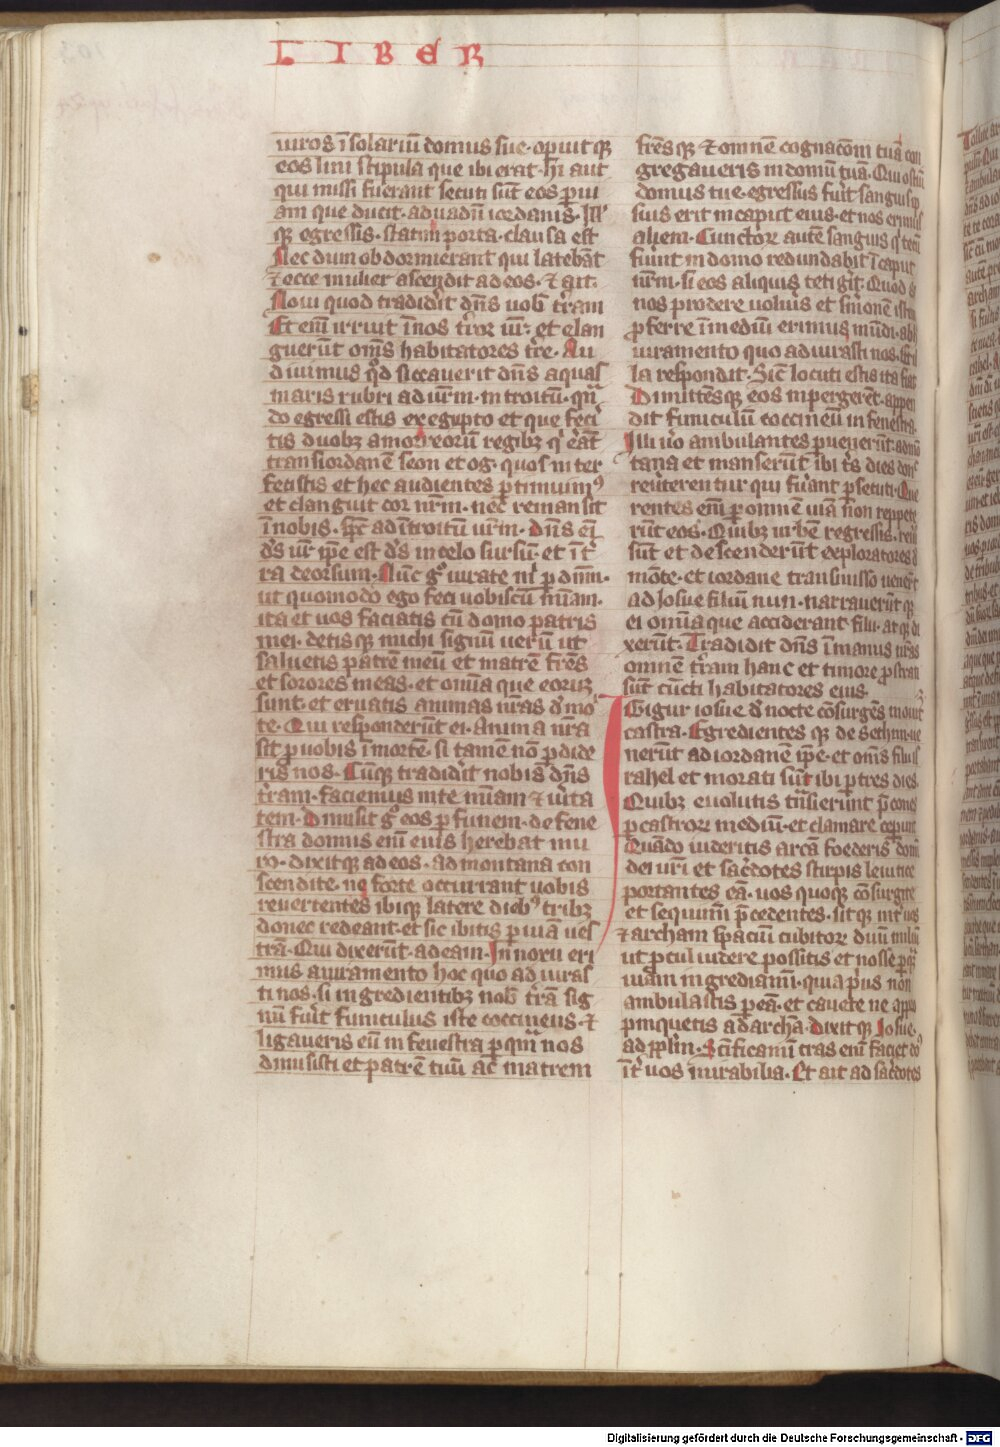 LIBER
uiros ī solariū domus sue · opuit qꝫ
eos lini stipula que ibi erat · hi aut
qui missi fuerant secuti sūt eos ꝑ ui
am que ducit · ad uadū iordanis · Ill'
qꝫ egressis · statim porta · clausa est
Nec dum obdormierant qui latebāt
⁊ ecce mulier ascendit ad eos · ⁊ ait ·
Noui quod tradidit dn̄s uob̄ t̄ram
Et em̄ irruit ī nos t̄ror ur̄ · et elan
guerūt om̄s habitatores t̄re · Au
diuimus qd̄ siccauerit dn̄s aquas
maris rubri ad ur̄m · introitū · qn̄
do egressi estis ex egypto et que feci
tis duobꝫ amorreorū regibꝫ q' erāt
trans iordanē seon et og · quos inter
fecistis et hec audientes ꝑtimuim⁹
et elanguit cor nr̄m · nec remansit
ī nobis · sp̄c ad ītroitū ur̄m · Dn̄s em̄
ds̄ ur̄ ip̄e est ds̄ in celo sursū · et ī t̄
ra deorsum · Nūc gͦ iurate m̄ ꝑ dn̄m ·
ut quomodo ego feci uobiscū mīam ·
ita et uos faciatis cū domo patris
mei · detis qꝫ michi signū uerū ut
saluetis patrē meū et matrē frēs
et sorores meas · et omīa que eorūꝫ
sunt · et eruatis animas nr̄as d' mo
te · Qui responderūt ei · Anima nr̄a
sit ꝑ uobis ī mortē · si tamē nō ꝑdide
ris nos · Cūqꝫ tradidīt nobis dn̄s
t̄ram · faciemus in te mīam ⁊ ūita
tem · Dimisit gͦ eos ꝑ funem · de fene
stra domus enī eius herebat mu
ro · dixitqꝫ ad eos · ad montana con
scendite · ne forte occurrant uobis
reuertentes ibiqꝫ latere dieb⁹ tribꝫ
donec redeant · et sic ibitis ꝑ uiā ues
trā · Qui dixerūt · ad eam · Innoxii eri
mus a iuramento hoc quo adiuras
ti nos · si ingredientibꝫ nob̄ t̄rā sig
nū fuīt funiculus iste coccineus · ⁊
ligaueris eū in fenestra ꝑ qm̄ nos
dimisisti et patrē tuū ac matrem
frēs qꝫ ⁊ omnē cognacōm tuā con
gregaueris in domū tuā · Qui ostiū
domus tue · egressus fuīt sanguis ip
sius erit in caput eius · et nos erimus
alieni · Cunctor̄ autē sanguis q' tecū
fuīnt in domo redundabit ī caput
nr̄m · si eos aliquis tetigīt · Quod si
nos prodere uolūis et sm̄onē istum
ꝓferre ī mediū erimus mūdi · ab h
iuramento quo adiurasti nos · Et il
la respondit · Sic̄ locuti estis ita fiat
Dimittēsqꝫ eos in pergerēt · appen
dit funiculū coccineū in fenestra ·
Illi ūo ambulantes ꝑuenerūt · ad mō
tana et manserūt ibi t̄s dies donc̄
reūterentur qui fūant ꝑsecuti · Que
rentes enī ꝑ omnē uiā non reppere
rūt eos · Quibꝫ urbē regressis · reū
sūt et descenderūt exploratores d'
mōte · et iordane transmisso uenerūt
ad Iosue filiū nun · narrauerūt qꝫ
ei omīa que acciderant filii · atqꝫ di
xerūt · Tradidit dn̄s ī manus nr̄as
omnē t̄ram hanc et timore ꝓstrati
sūt cūcti habitatores eius ·
IGitur iosue d' nocte cōsurgēs mouit
castra · Egredientes qꝫ de Sethim · ue
nerūt ad iordanē ip̄e · et om̄s filii is
rahel et morati sūt ibi ꝑ tres dies ·
Quibꝫ euolutis tn̄sierunt p̄cones
ꝑ castror̄ mediū · et clamare ceperunt
Quādo uideritis arcā foederis domī
dei uri et sac̄dotes stirpis leuitice
portantes eā · uos quoqꝫ cōsurgite
et sequimī p̄cedentes · sitqꝫ int̄ uos
⁊ archam spaciū cubitor̄ duū miliū
ut ꝓcul uidere possitis et nosse ꝑ qm̄
uiam ingrediamī · quia prius nōn
ambulastis ꝑ eā · et cauete ne appro
pinquetis ad archā · Dixitqꝫ Iosue ·
ad pplm̄ · Sc̄ificamī cras enī faciet do⁹
īt̄ uos mirabilia · Et ait ad sac̄dotes
Digitalisierung gefördert durch die Deutsche Forschungsgemeinschaft - DFG